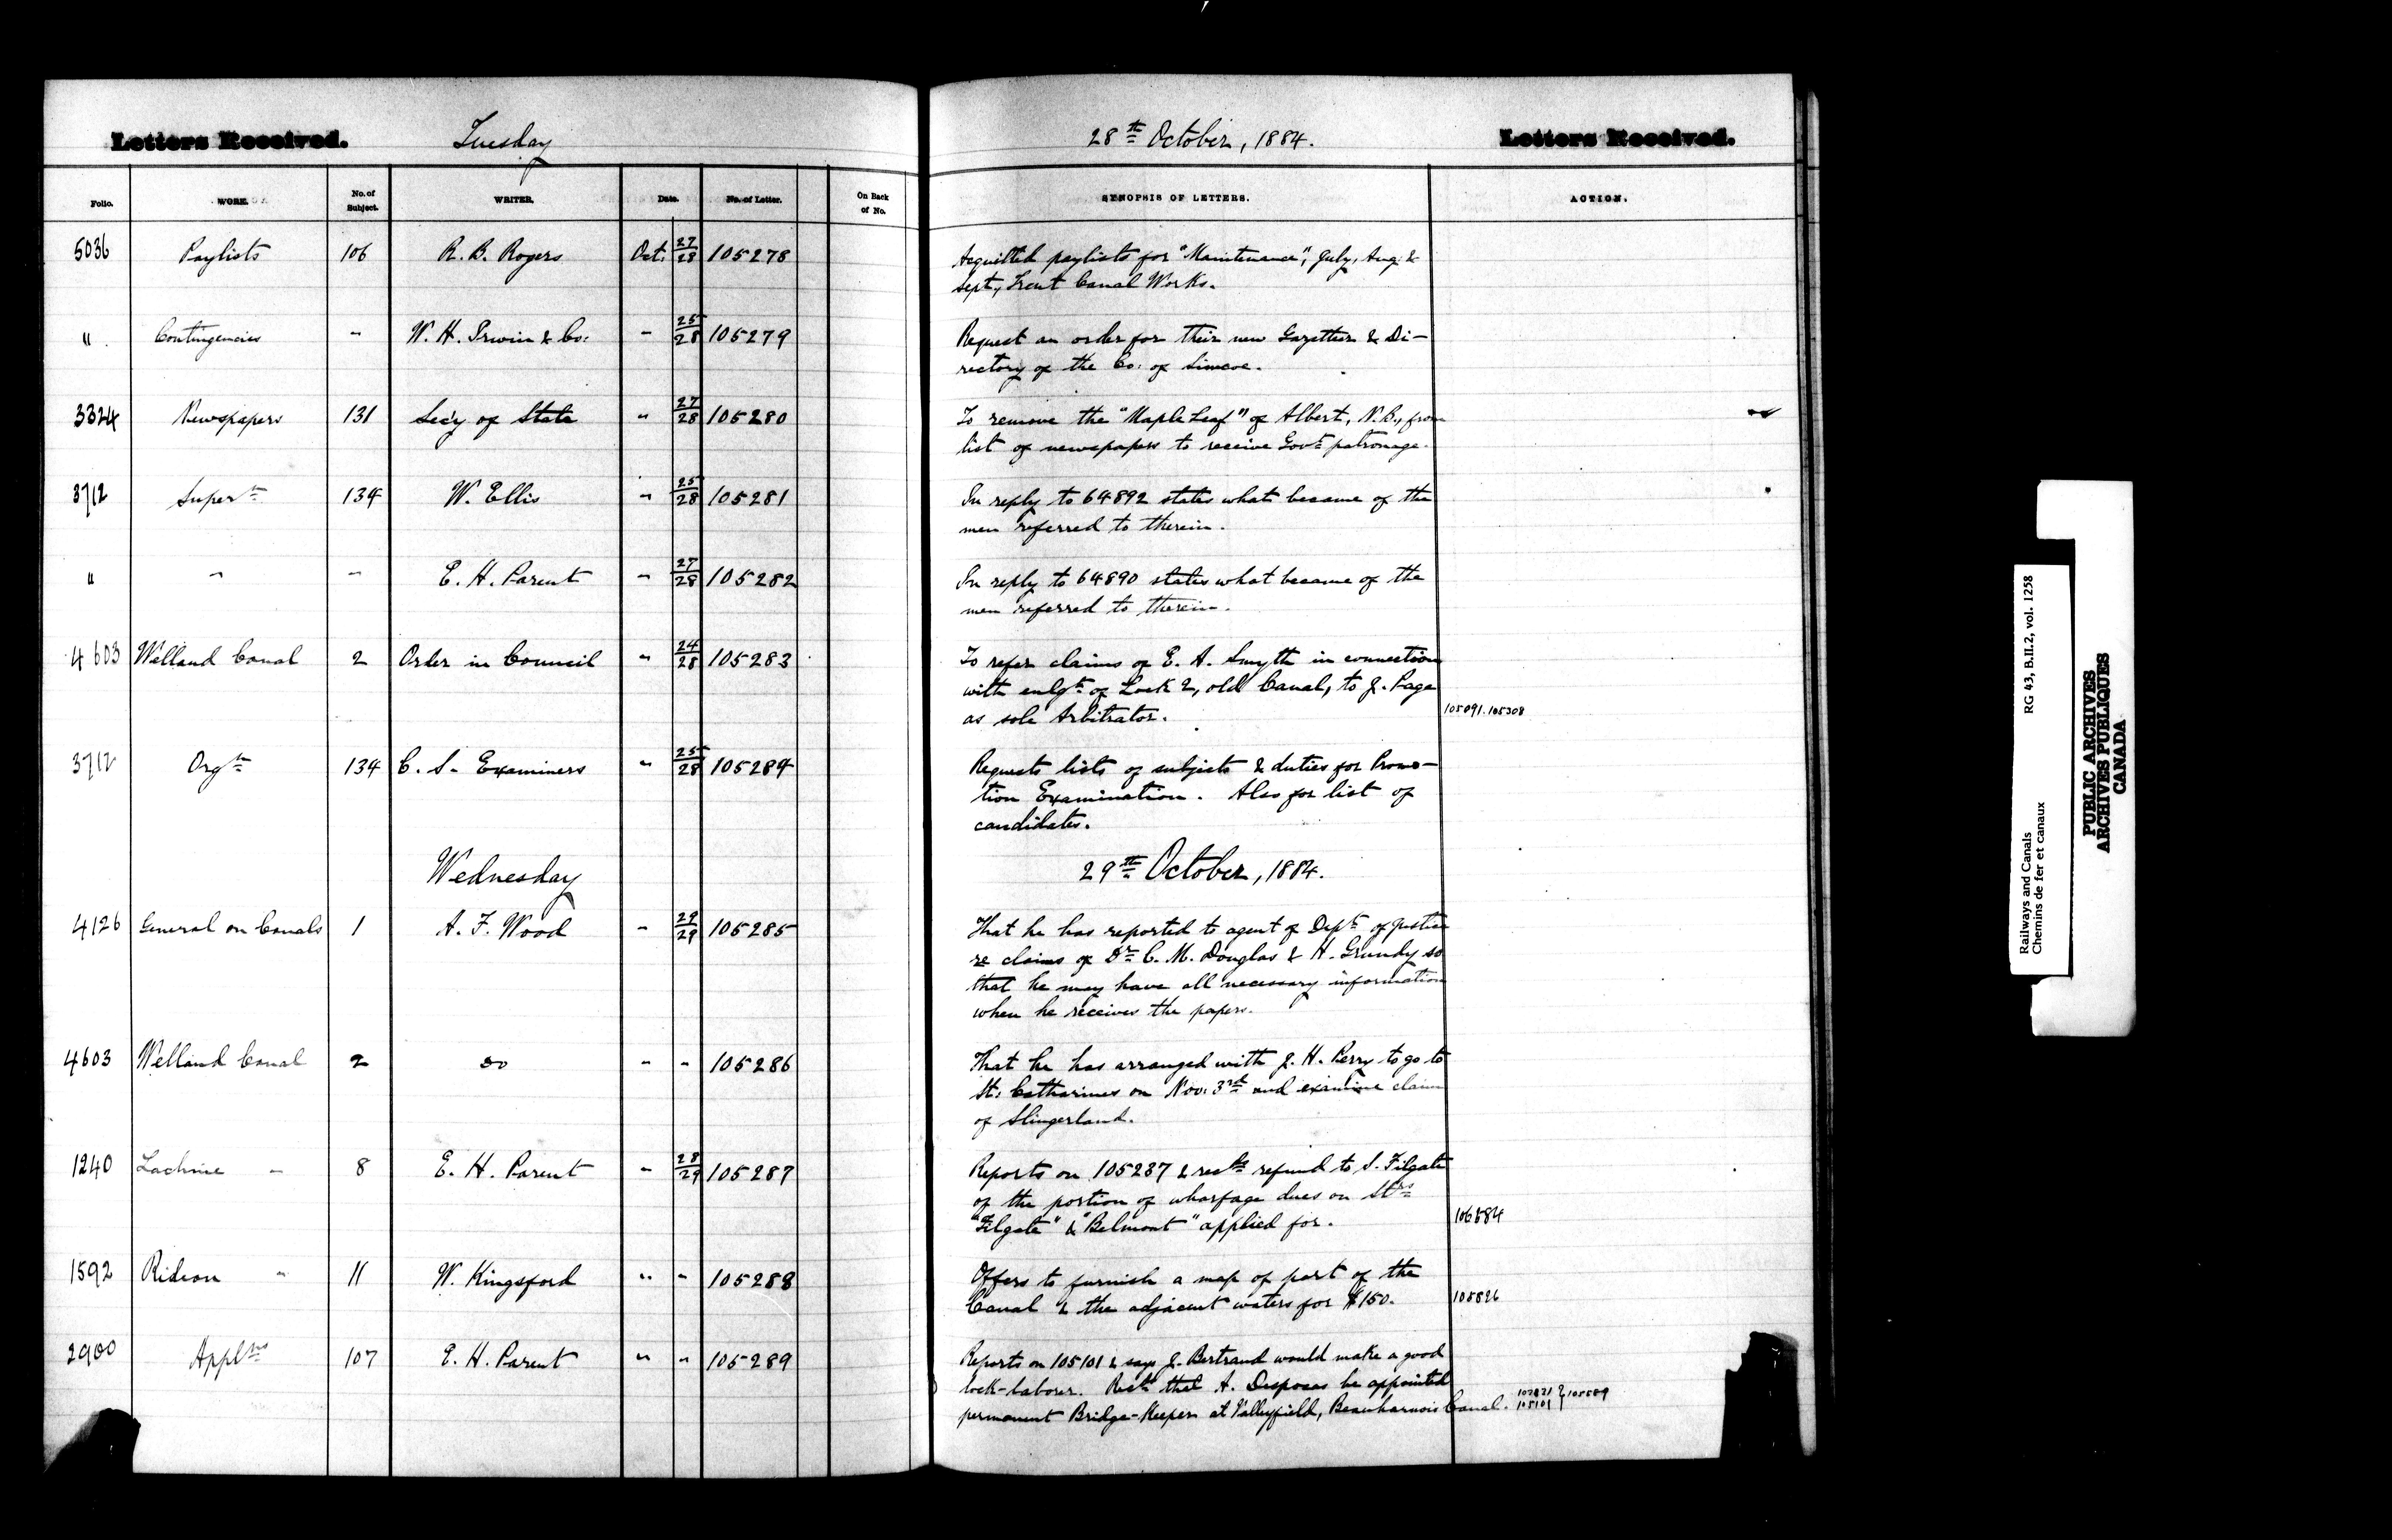 Letters Received. Tuesday 28th October, 1884. Letters Received.
Folio. WORK. No. of Subject. WRITER. Date. No. of Letter. On Back of No. SYNOPSIS OF LETTERS. ACTION.
5036 Paylists 106 R. B. Rogers Oct. 27/28 105278 Acquitted paylists for "Maintenance", July, Aug. &
Sept., Trent Canal Works.
" Contingencies " W. H. Irwin & Co. " 25/28 105279 Request an order for their new Gazetteer & Di-
rectory of the Co. of Simcoe.
3324 Newspapers 131 Sec'y of State " 27/28 105280 To remove the "Maple Leaf" of Albert, N.B., from
list of newspapers to receive Govt patronage.
3712 Supert 134 W. Ellis " 25/28 105281 In reply to 64892 states what became of the
men referred to therein.
" " " E. H. Parent " 27/28 105282 In reply to 64890 states what became of the
men referred to therein.
4603 Welland Canal 2 Order in Council " 24/28 105283 To refer claims of E. A. Smyth in connection
with enlgt of Lock 2, old Canal, to J. Page
as sole Arbitrator. 105091. 105308
3712 Orgn 134 C. S. Examiners " 25/28 105284 Requests lists of subjects & duties for Promo-
tion Examination. Also for list of
candidates.
Wednesday 29th October, 1884.
4126 General on Canals 1 A. F. Wood " 29/29 105285 That he has reported to agent of Dept of Justice
re claims of Dr C. M. Douglas & H. Grundy so
that he may have all necessary information
when he receives the papers.
4603 Welland Canal 2 do " " 105286 That he has arranged with J. H. Perry to go to
St. Catharines on Nov. 3rd and examine claim
of Slingerland.
1240 Lachine " 8 E. H. Parent " 28/29 105287 Reports on 105237 & recds refund to S. Filgate
of the portion of wharfage dues on Strs
"Filgate" & "Belmont" applied for. 106584
1592 Rideau " 11 W. Kingsford " " 105288 Offers to furnish a map of part of the
Canal & the adjacent waters for $150. 105826
2900 Applns 107 E. H. Parent " " 105289 Reports on 105101 & says J. Bertrand would make a good
lock-laborer. Recds that A. Desposes be appointed
permanent Bridge-Keeper at Valleyfield, Beauharnois Canal. 105101 } 105589
Railways and Canals RG 43, B.II.2, vol. 1258
Chemins de fer et canaux
PUBLIC ARCHIVES
ARCHIVES PUBLIQUES
CANADA